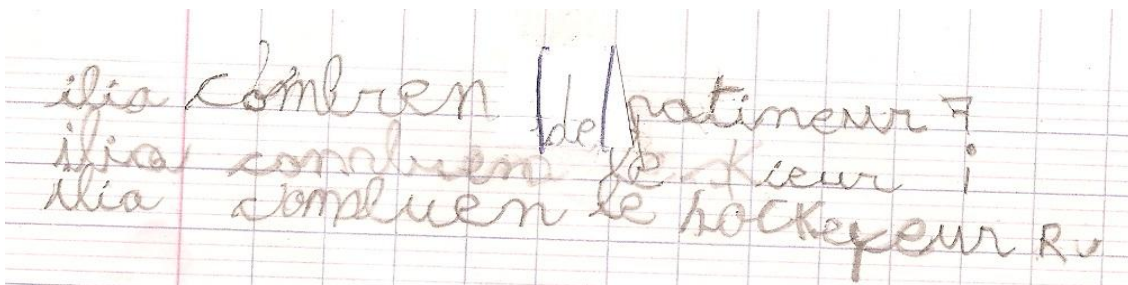 ilia combren de patineur ?
ilia conbluen de skieur ¡
ilia conbluen le hockeyeur R